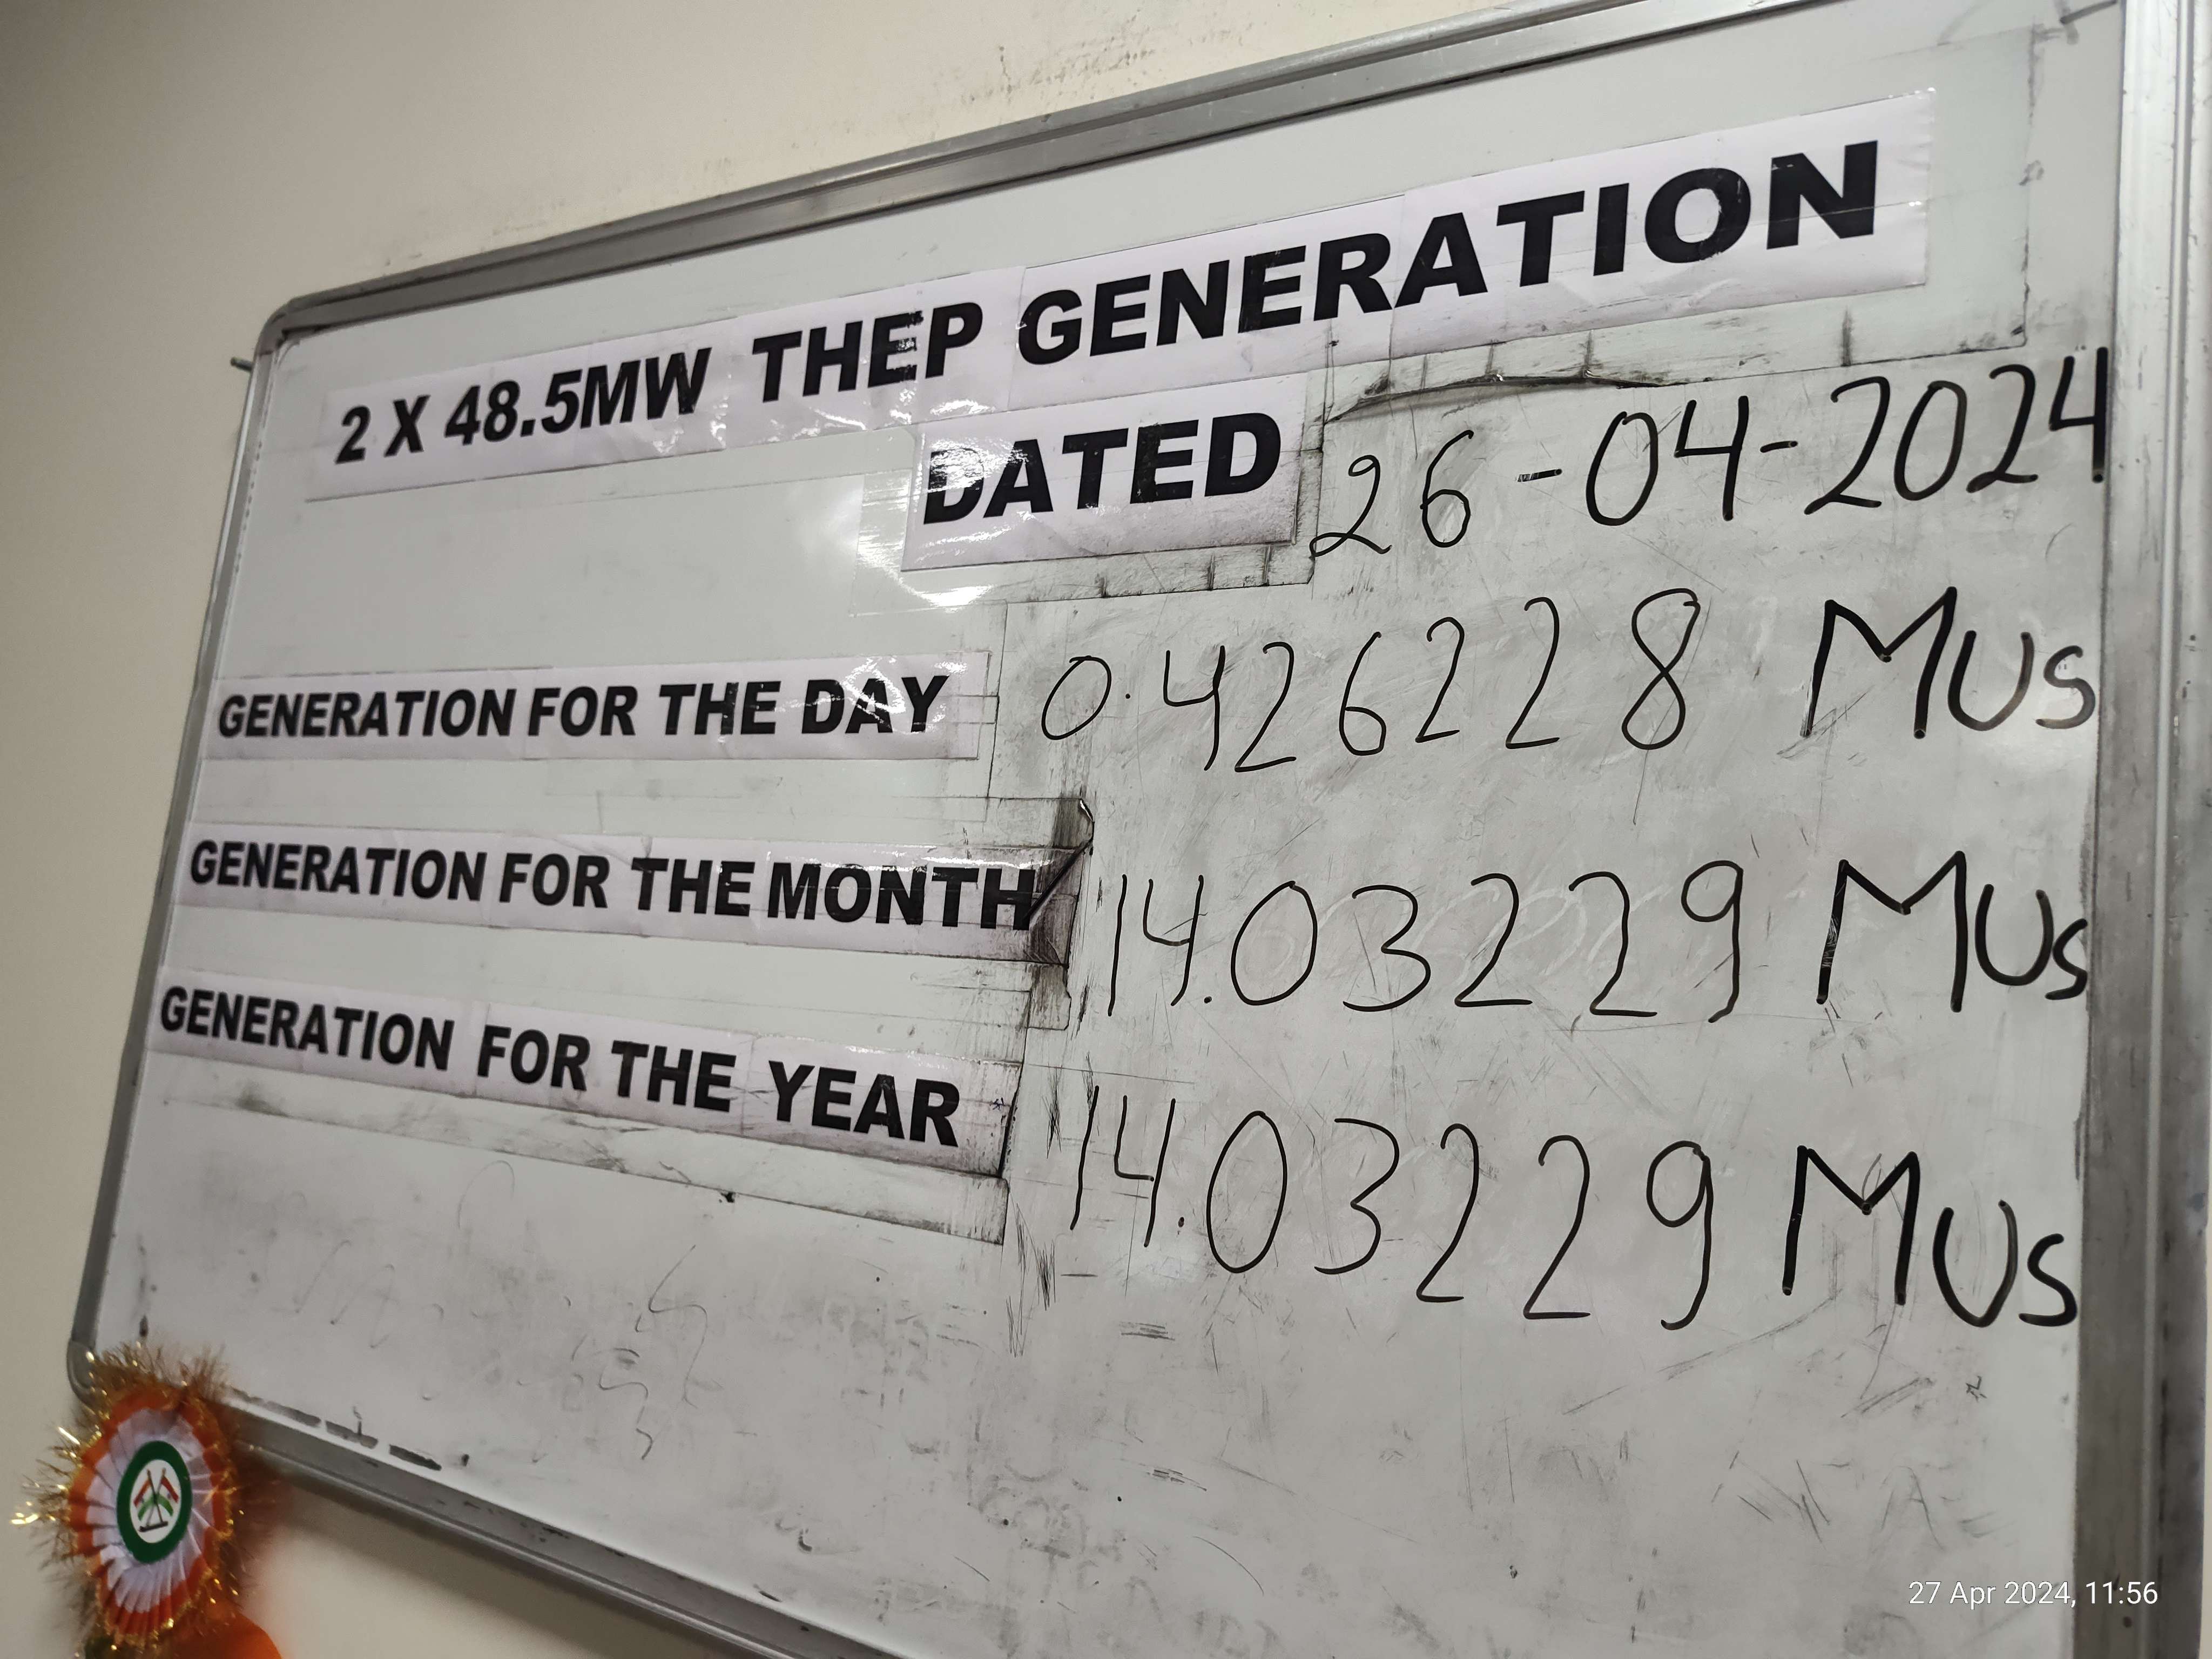 2 X 48.5MW THEP GENERATION
DATED 26-04-2024
GENERATION FOR THE DAY 0.426228 MUs
GENERATION FOR THE MONTH 14.03229 MUs
GENERATION FOR THE YEAR 14.03229 MUs
27 Apr 2024, 11:56